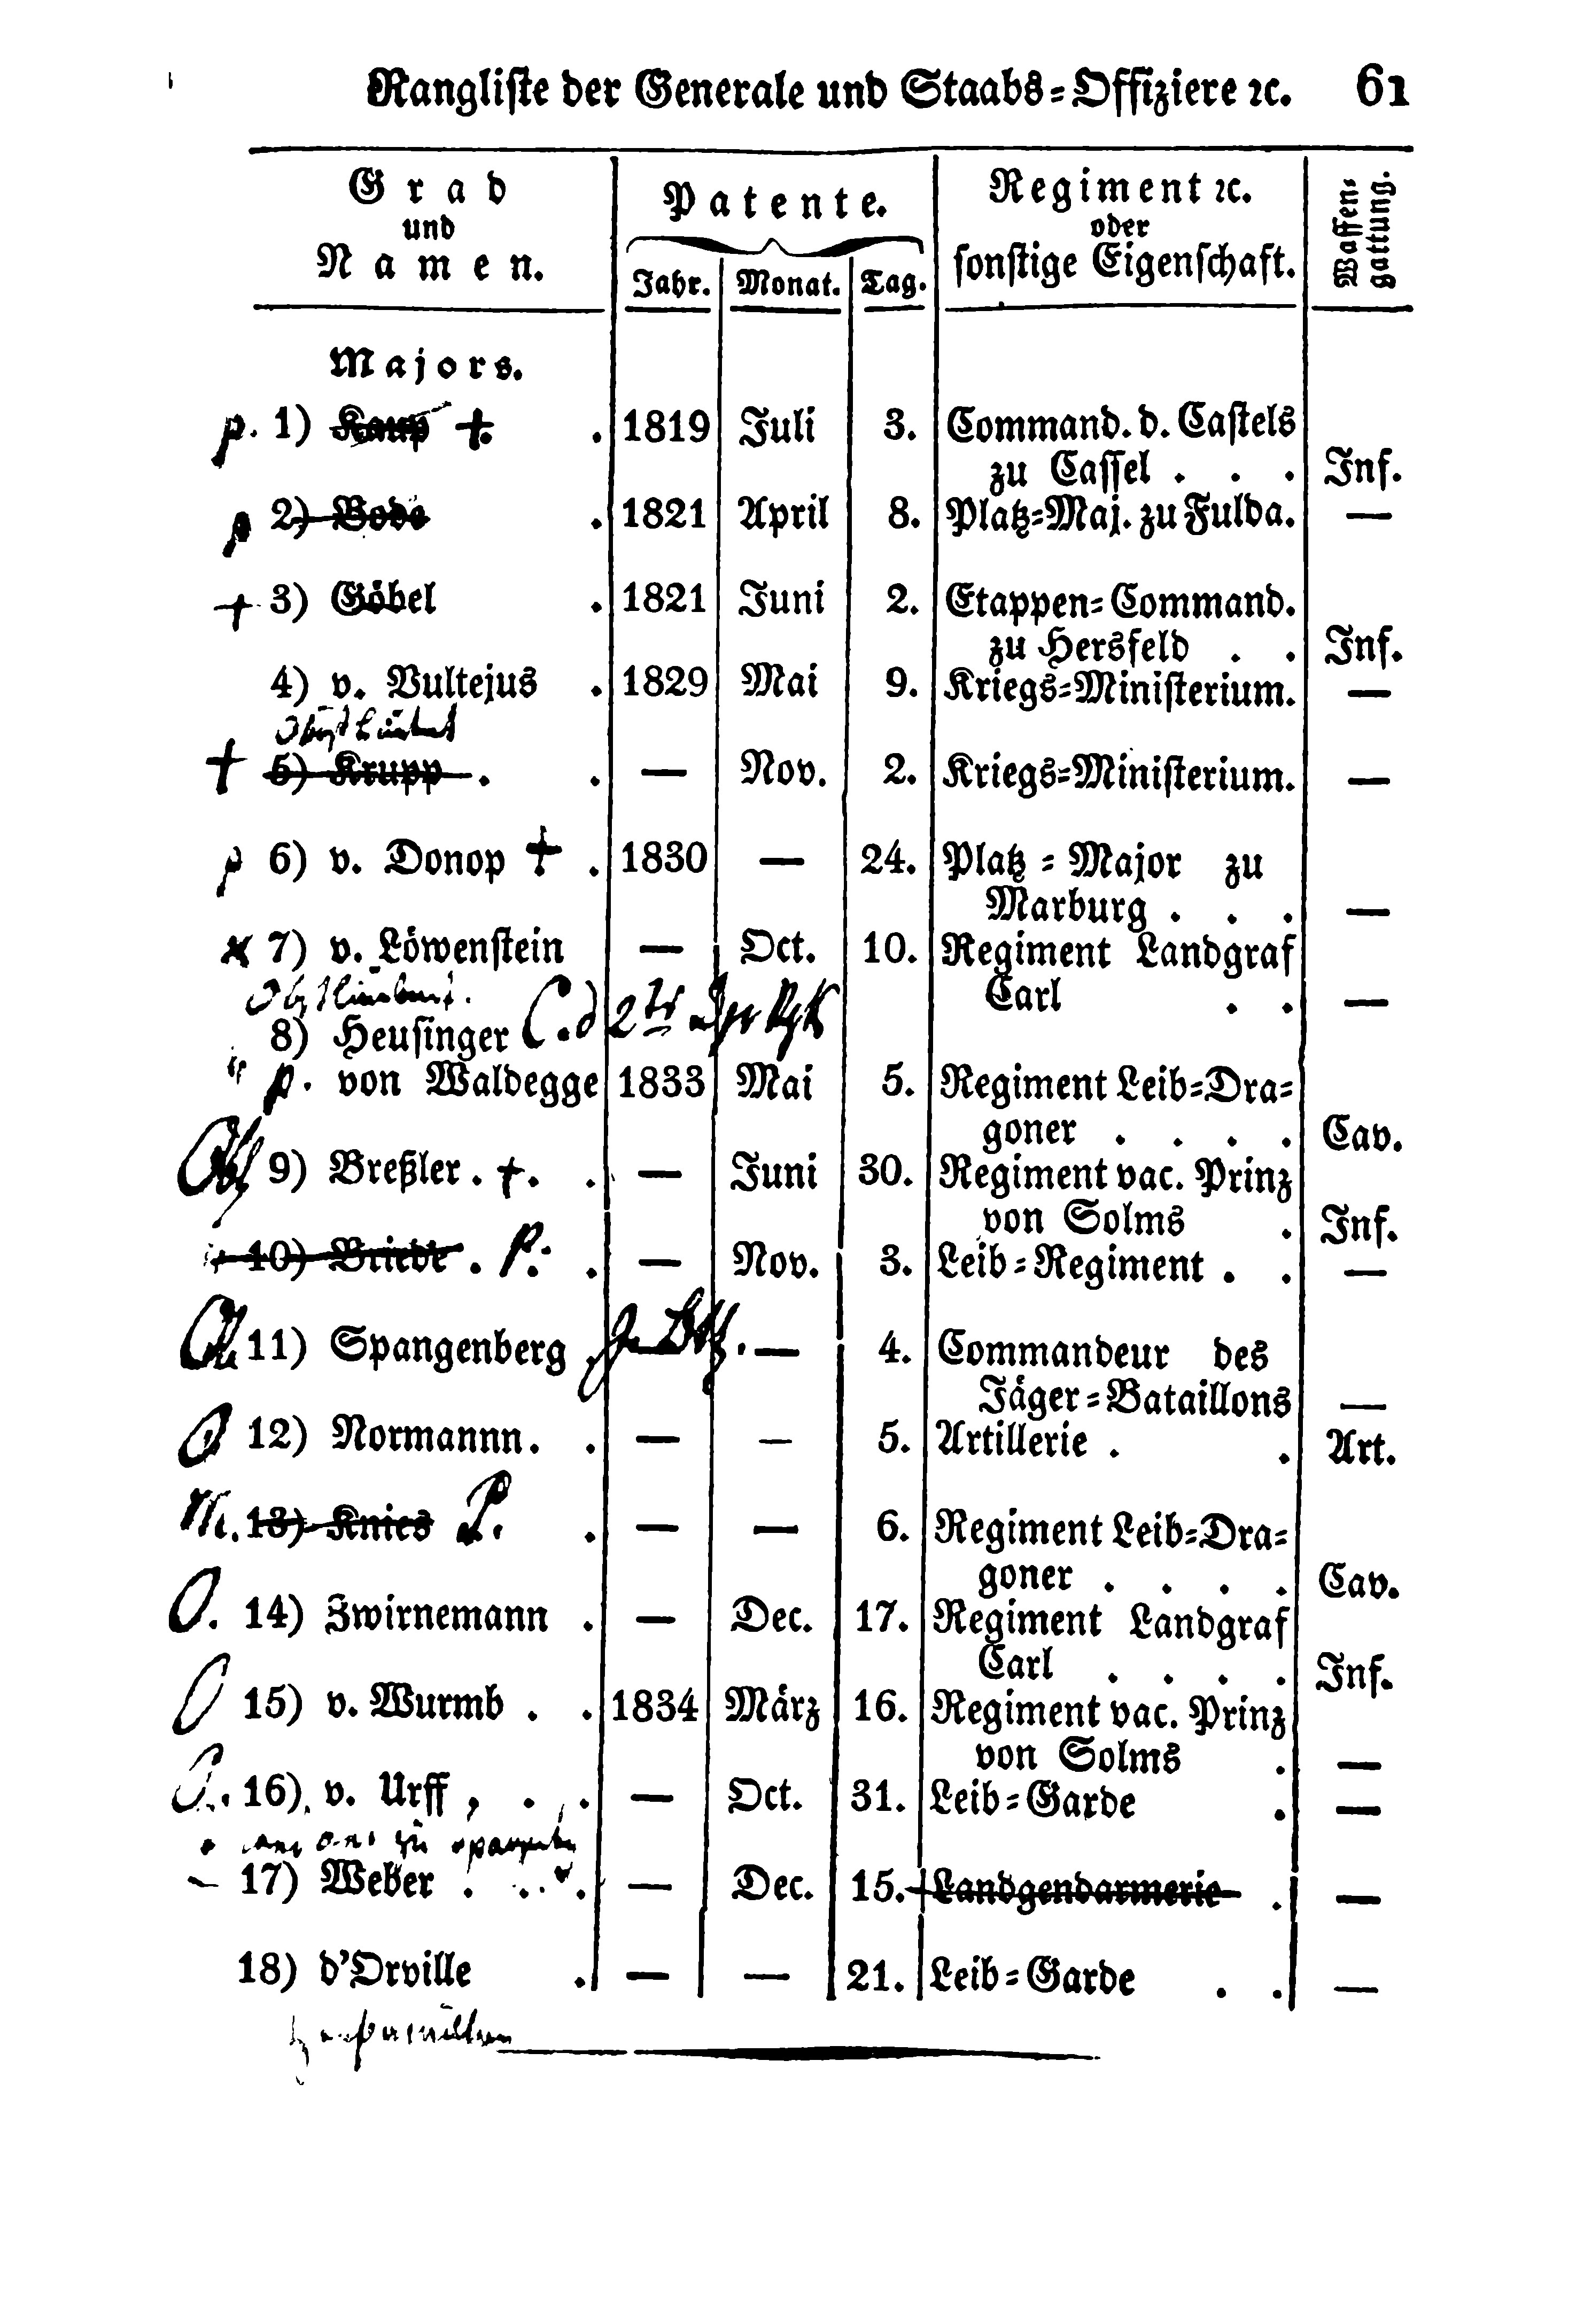 Rangliste der Generale und Staabs-Offiziere ꝛc. 61
Grad
und
Namen.
Patente.
Jahr. Monat. Tag.
Regiment ꝛc.
oder
sonstige Eigenschaft.
Waffen-
gattung.
Majors.
p. 1) Kaup †. . 1819 Juli 3. Command. d. Castels
zu Cassel . . . Inf.
p 2) Bode . 1821 April 8. Platz-Maj. zu Fulda. —
† 3) Göbel . 1821 Juni 2. Etappen-Command.
zu Hersfeld . . Inf.
4) v. Vultejus . 1829 Mai 9. Kriegs-Ministerium. —
† 5) Krupp . . — Nov. 2. Kriegs-Ministerium. —
p 6) v. Donop † . 1830 — 24. Platz-Major zu
Marburg . . . —
7) v. Löwenstein — Oct. 10. Regiment Landgraf
Carl . . —
8) Heusinger C. d 2ts
p. von Waldegge 1833 Mai 5. Regiment Leib-Dra-
goner . . . . Cav.
9) Breßler . †. . — Juni 30. Regiment vac. Prinz
von Solms . Inf.
10) Briede . P. . — Nov. 3. Leib-Regiment . . —
11) Spangenberg . — — 4. Commandeur des
Jäger-Bataillons —
12) Normannn. . — — 5. Artillerie . . Art.
M. 13) Knies P. . — — 6. Regiment Leib-Dra-
goner . . . . Cav.
O. 14) Zwirnemann . — Dec. 17. Regiment Landgraf
Carl . . . . Inf.
O 15) v. Wurmb . . 1834 März 16. Regiment vac. Prinz
von Solms . —
O. 16) v. Urff , . . — Oct. 31. Leib-Garde . —
17) Weber . . . — Dec. 15. Landgendarmerie . —
18) d'Orville . — — 21. Leib-Garde . . —